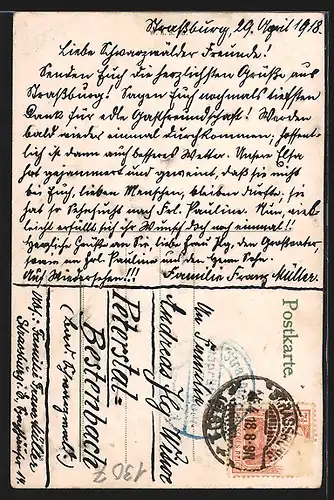 Straßburg, 29. April 1918.
Liebe Schwarzwälder Freunde!
Senden Euch die herzlichsten Grüße aus
Straßburg! Sagen Euch nochmals tiefsten
Dank für edle Gastfreundschaft! Werden
bald wieder einmal durchkommen; hoffent-
lich ist dann auch besseres Wetter. Unsere Elsa
hat gejammert und geweint, daß sie nicht
bei Euch, lieben Menschen, bleiben durfte; sie
hat so Sehnsucht nach Frl. Pauline. Nun, viel-
leicht erfüllt sich ihr Wunsch doch noch einmal!!
Herzliche Grüße an Sie, liebe Frau, den Großvater,
sowie an Frl. Pauline und den Herrn Sohn.
Auf Wiedersehen!!! Familie Franz Müller.
Postkarte.
An Familie
Andreas
Peterstal=
Bestenbach
1307
Abs: Familie Franz Müller
Straßburg i. E.
4.18.8-9N